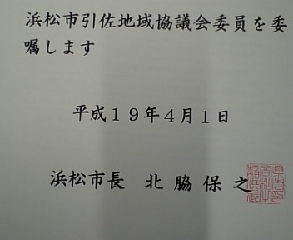 浜松市引佐地域協議会委員を委
嘱します
平成19年4月1日
浜松市長 北脇保之